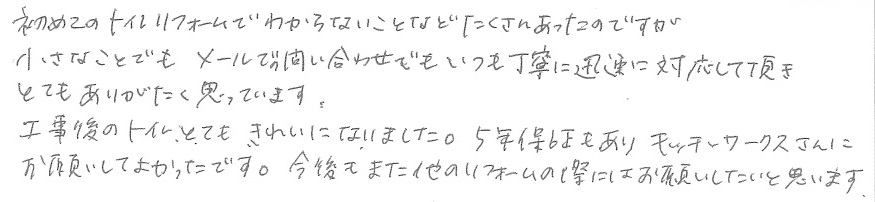 初めてのトイレリフォームでわからないことなどたくさんあったのですが
小さなことでも メールでの問い合わせでもいつも丁寧に迅速に対応して頂き
とてもありがたく思っています。
工事後のトイレ、とても きれいになりました。5年保証もあり キッチンワークスさんに
お願いしてよかったです。今後もまた他のリフォームの際にはお願いしたいと思います。